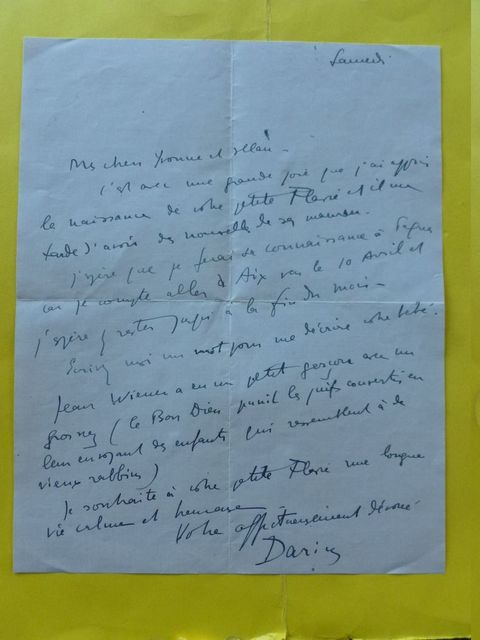 Samedi
Mes chers Yvonne et Allan -
C'est avec une grande joie que j'ai appris
la naissance de votre petite Flavie et il me
tarde d'avoir des nouvelles de sa maman.
J'espère que je ferai sa connaissance à Pâques
car je compte aller à Aix vers le 10 Avril et
j'espère y rester jusqu'à la fin du mois -
Ecrivez moi un mot pour me décrire votre bébé.
Jean Wiener a eu un petit garçon avec un
gros nez (le Bon Dieu punit les juifs convertis en
leur envoyant des enfants qui ressemblent à de
vieux rabbins)
Je souhaite à votre petite Flavie une longue
vie calme et heureuse
Votre affectueusement dévoué
Darius